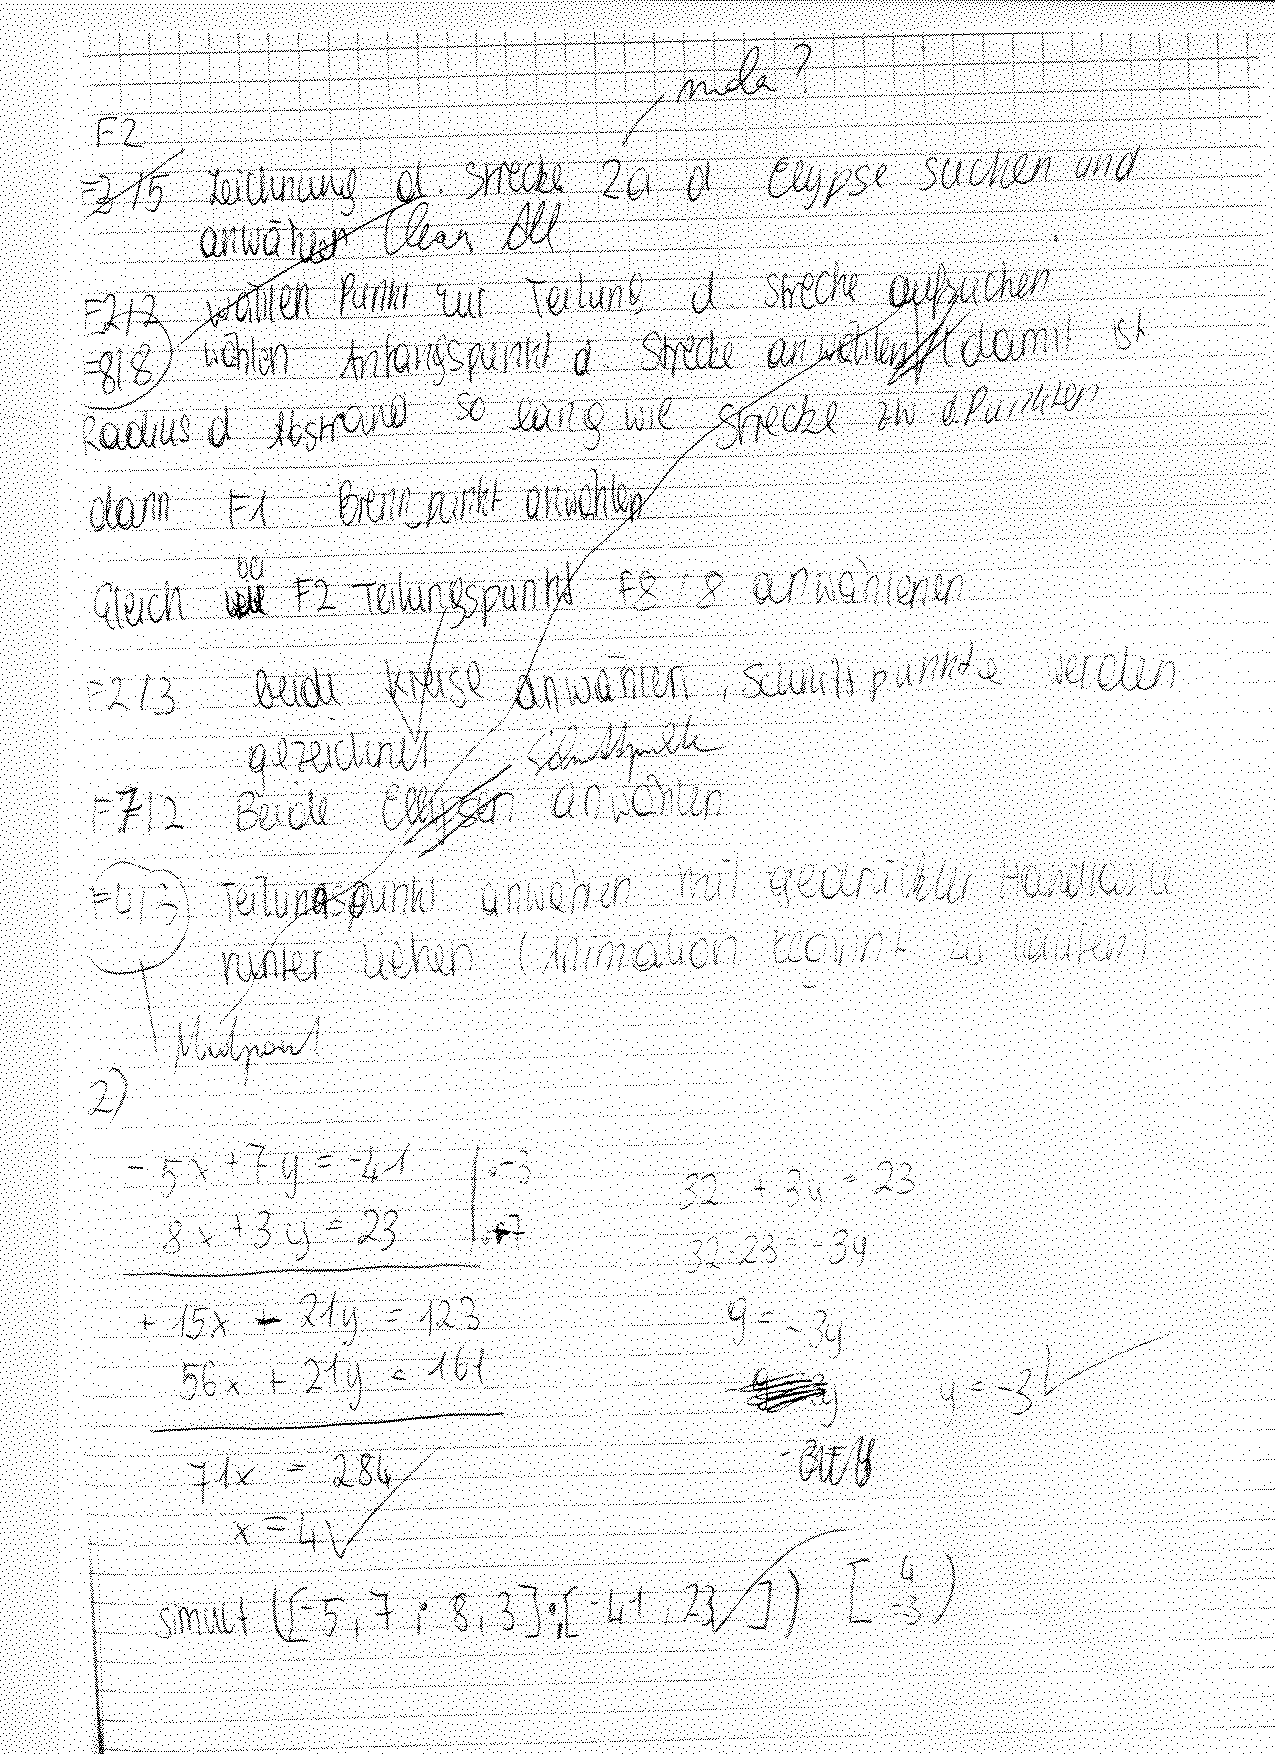 F2
F2/5 Zeichnung d. Strecke 2a d Elypse suchen und
anwählen Clear All
F2/2 wählen Punkt zur Teilung d. Strecke aufsuchen
F8/8 wählen Anfangspunkt d. Strecke anwählen (damit ist
Radius d Abstand so lang wie Strecke zw d. Punkten
dann F1 Brennpunkt anwählen
Gleich F2 Teilungspunkt F8 : 8 anwählenen
F2/3 beide Kreise anwählen, Schnittpunkte werden
gezeichnet Schnittpunkte
F7/2 Beide Elypsen anwählen
F4/3 Teilungspunkt anwählen mit gedrückter Handtaste
runter ziehen (Animation beginnt zu laufen)
2)
- 5x + 7y = -41 | · -3
8x + 3y = 23 | · 7
+ 15x - 21y = 123
56x + 21y = 161
71x = 284
x = 4
32 + 3y = 23
32 - 23 = -3y
9 = -3y
y = -3
simult ([-5, 7 ; 8, 3] ; [-41, 23]) [4
-3)